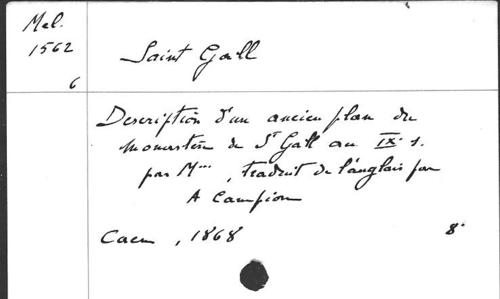 Mel.
1562
6
Saint Gall
Description d'un ancien plan du
monastère de St Gall au IXe s.
par M*** , traduit de l'anglais par
A Campion
Caen , 1868 8°